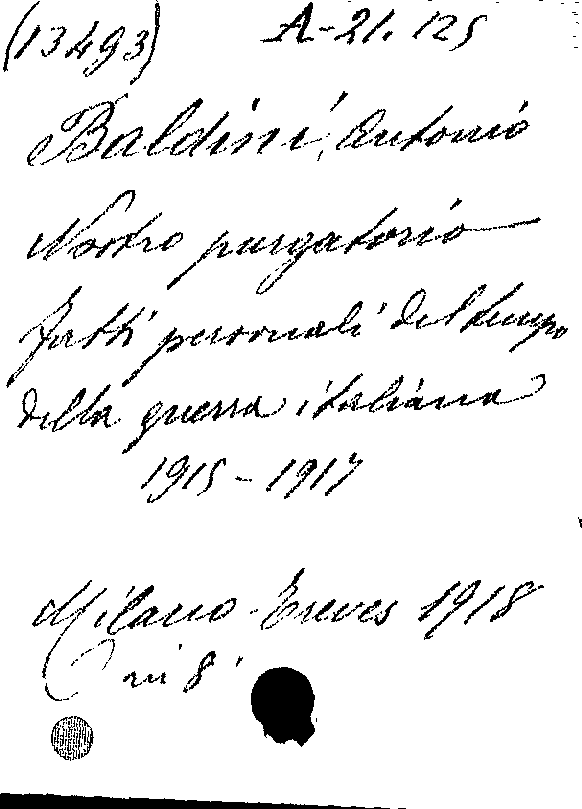 (13493) A-21. 125
Baldini, Antonio
Nostro purgatorio
Fatti personali del tempo
della guerra italiana
1915-1917
Milano-Treves 1918
in 8°